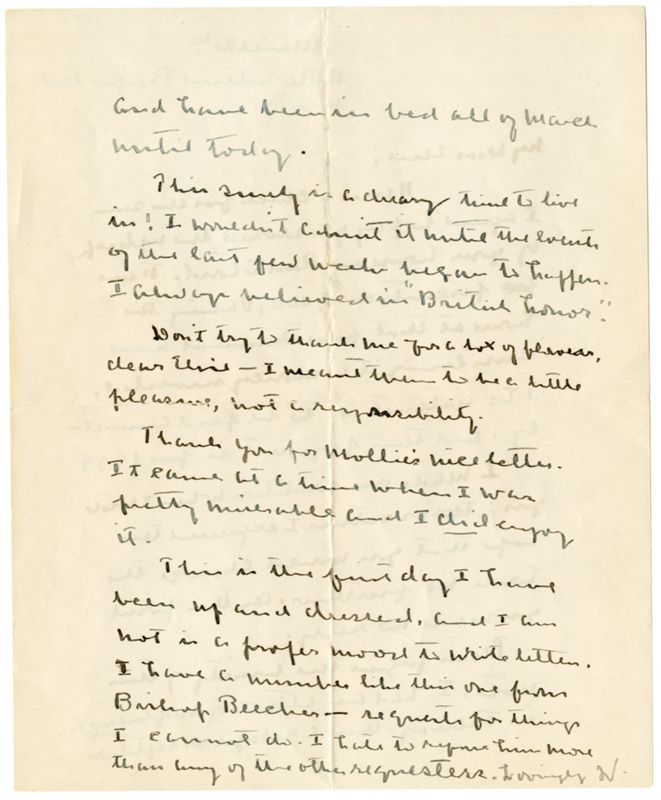 and have been in bed all of March
until today.
This surely is a dreary time to live
in! I wouldn't admit it until the events
of the last few weeks began to happen.
I always believed in "British honor".
Don't try to thank me for a box of flowers,
dear Elsie — I meant them to be a little
pleasure, not a responsibility.
Thank you for Mollie's nice letter.
It came at a time when I was
pretty miserable and I did enjoy
it.
This is the first day I have
been up and dressed, and I am
not in a proper mood to write letters.
I have a number like this one from
Bishop Beecher — requests for things
I cannot do. I hate to refuse him more
than any of the other requesters. Lovingly W.